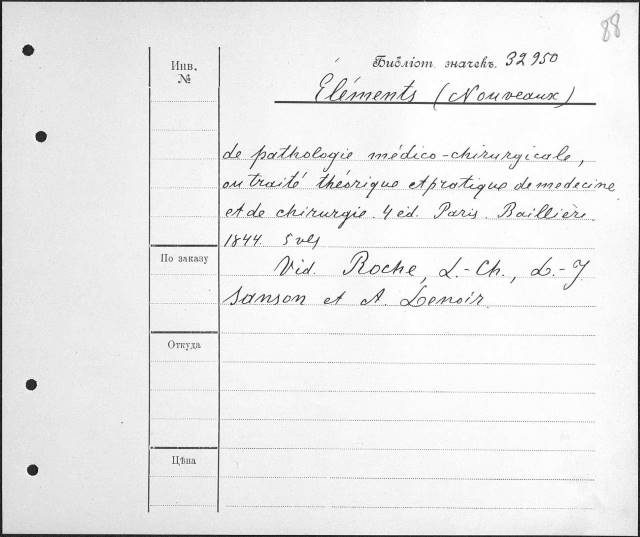 88
Инв.
№
Библіот. значекъ. 32950
Éléments (Nouveaux)
de pathologie médico-chirurgicale,
ou traité théorique et pratique de medecine
et de chirurgie. 4 éd. Paris. Baillière.
1844. 5 vls
По заказу
Vid. Roche, L.-Ch., L.-J.
Sanson et A. Lenoir.
Откуда
Цѣна